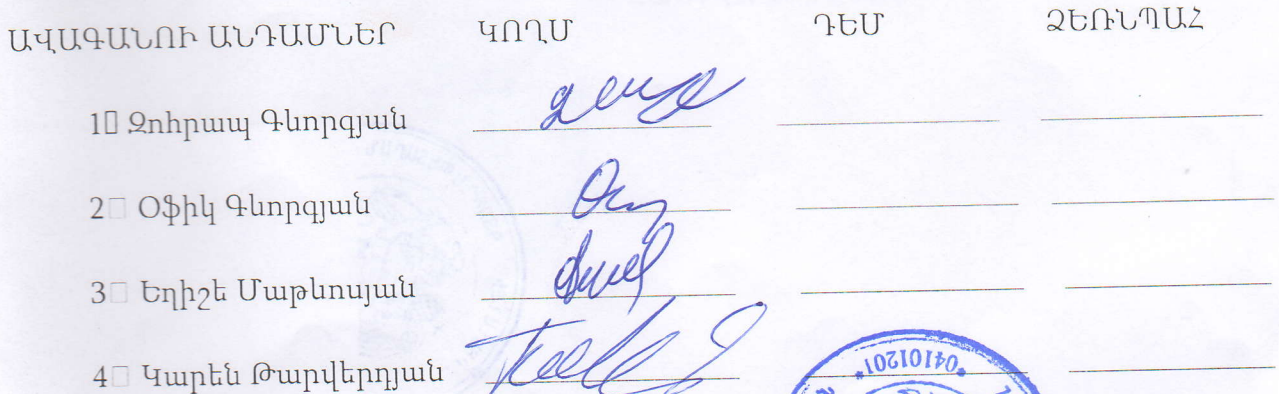 ԱՎԱԳԱՆՈՒ ԱՆԴԱՄՆԵՐ ԿՈՂՄ ԴԵՄ ՁԵՌՆՊԱՀ
1 Զոհրապ Գևորգյան
2 Օֆիկ Գևորգյան
3 Եղիշե Մաթևոսյան
4 Կարեն Թարվերդյան
*04101201*